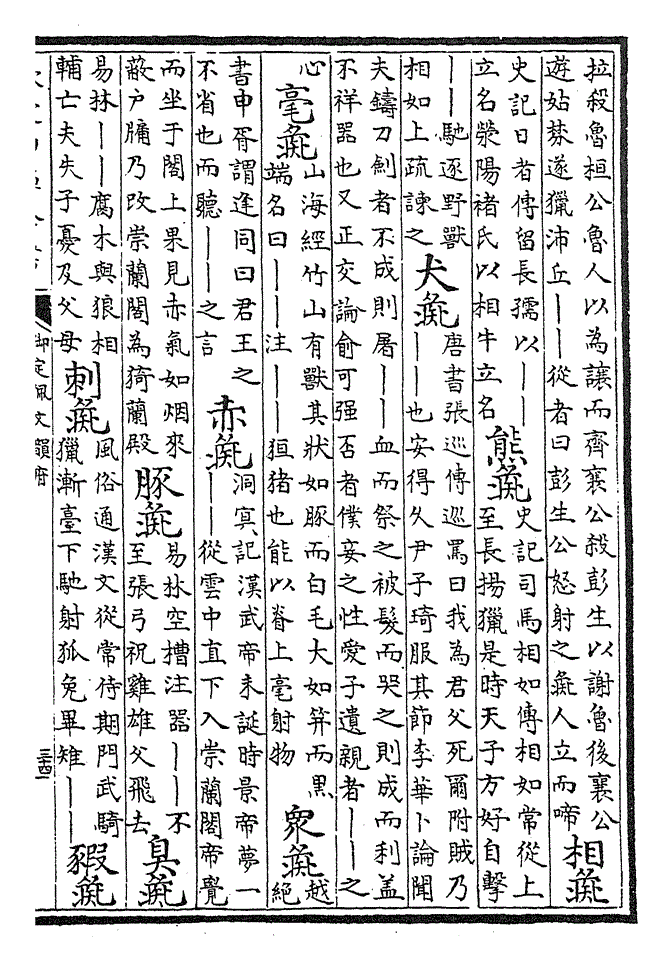 拉殺魯桓公魯人以為讓而齊襄公殺彭生以謝魯後襄公
遊姑棼遂獵沛丘——從者曰彭生公怒射之彘人立而啼
相彘
史記日者傳留長孺以——
立名滎陽褚氏以相牛立名
熊彘
史記司馬相如傳相如常從上
至長揚獵是時天子方好自擊
——馳逐野獸
相如上疏諫之
犬彘
唐書張巡傳巡罵曰我為君父死爾附賊乃
——也安得久尹子琦服其節李華卜論聞
夫鑄刀劍者不成則屠——血而祭之被髮而哭之則成而利蓋
不祥器也又正交論俞可强否者僕妾之性愛子遺親者——之
心
毫彘
山海經竹山有獸其狀如豚而白毛大如笄而黑
端名曰——注——狟猪也能以脊上毫射物
眾彘
越
絕
書申胥謂逢同曰君王之
不省也而聽——之言
赤彘
洞冥記漢武帝未誕時景帝夢一
——從雲中直下入崇蘭閣帝覺
而坐于閣上果見赤氣如烟來
蔽户牖乃改崇蘭閣為猗蘭殿
豚彘
易林空槽注器——不
至張弓祝雞雄父飛去
臭彘
易林——腐木與狼相
輔亡夫失子憂及父母
刺彘
風俗通漢文從常侍期門武騎
獵漸臺下馳射狐兔畢雉——
豭彘
御定佩文韻府
三四